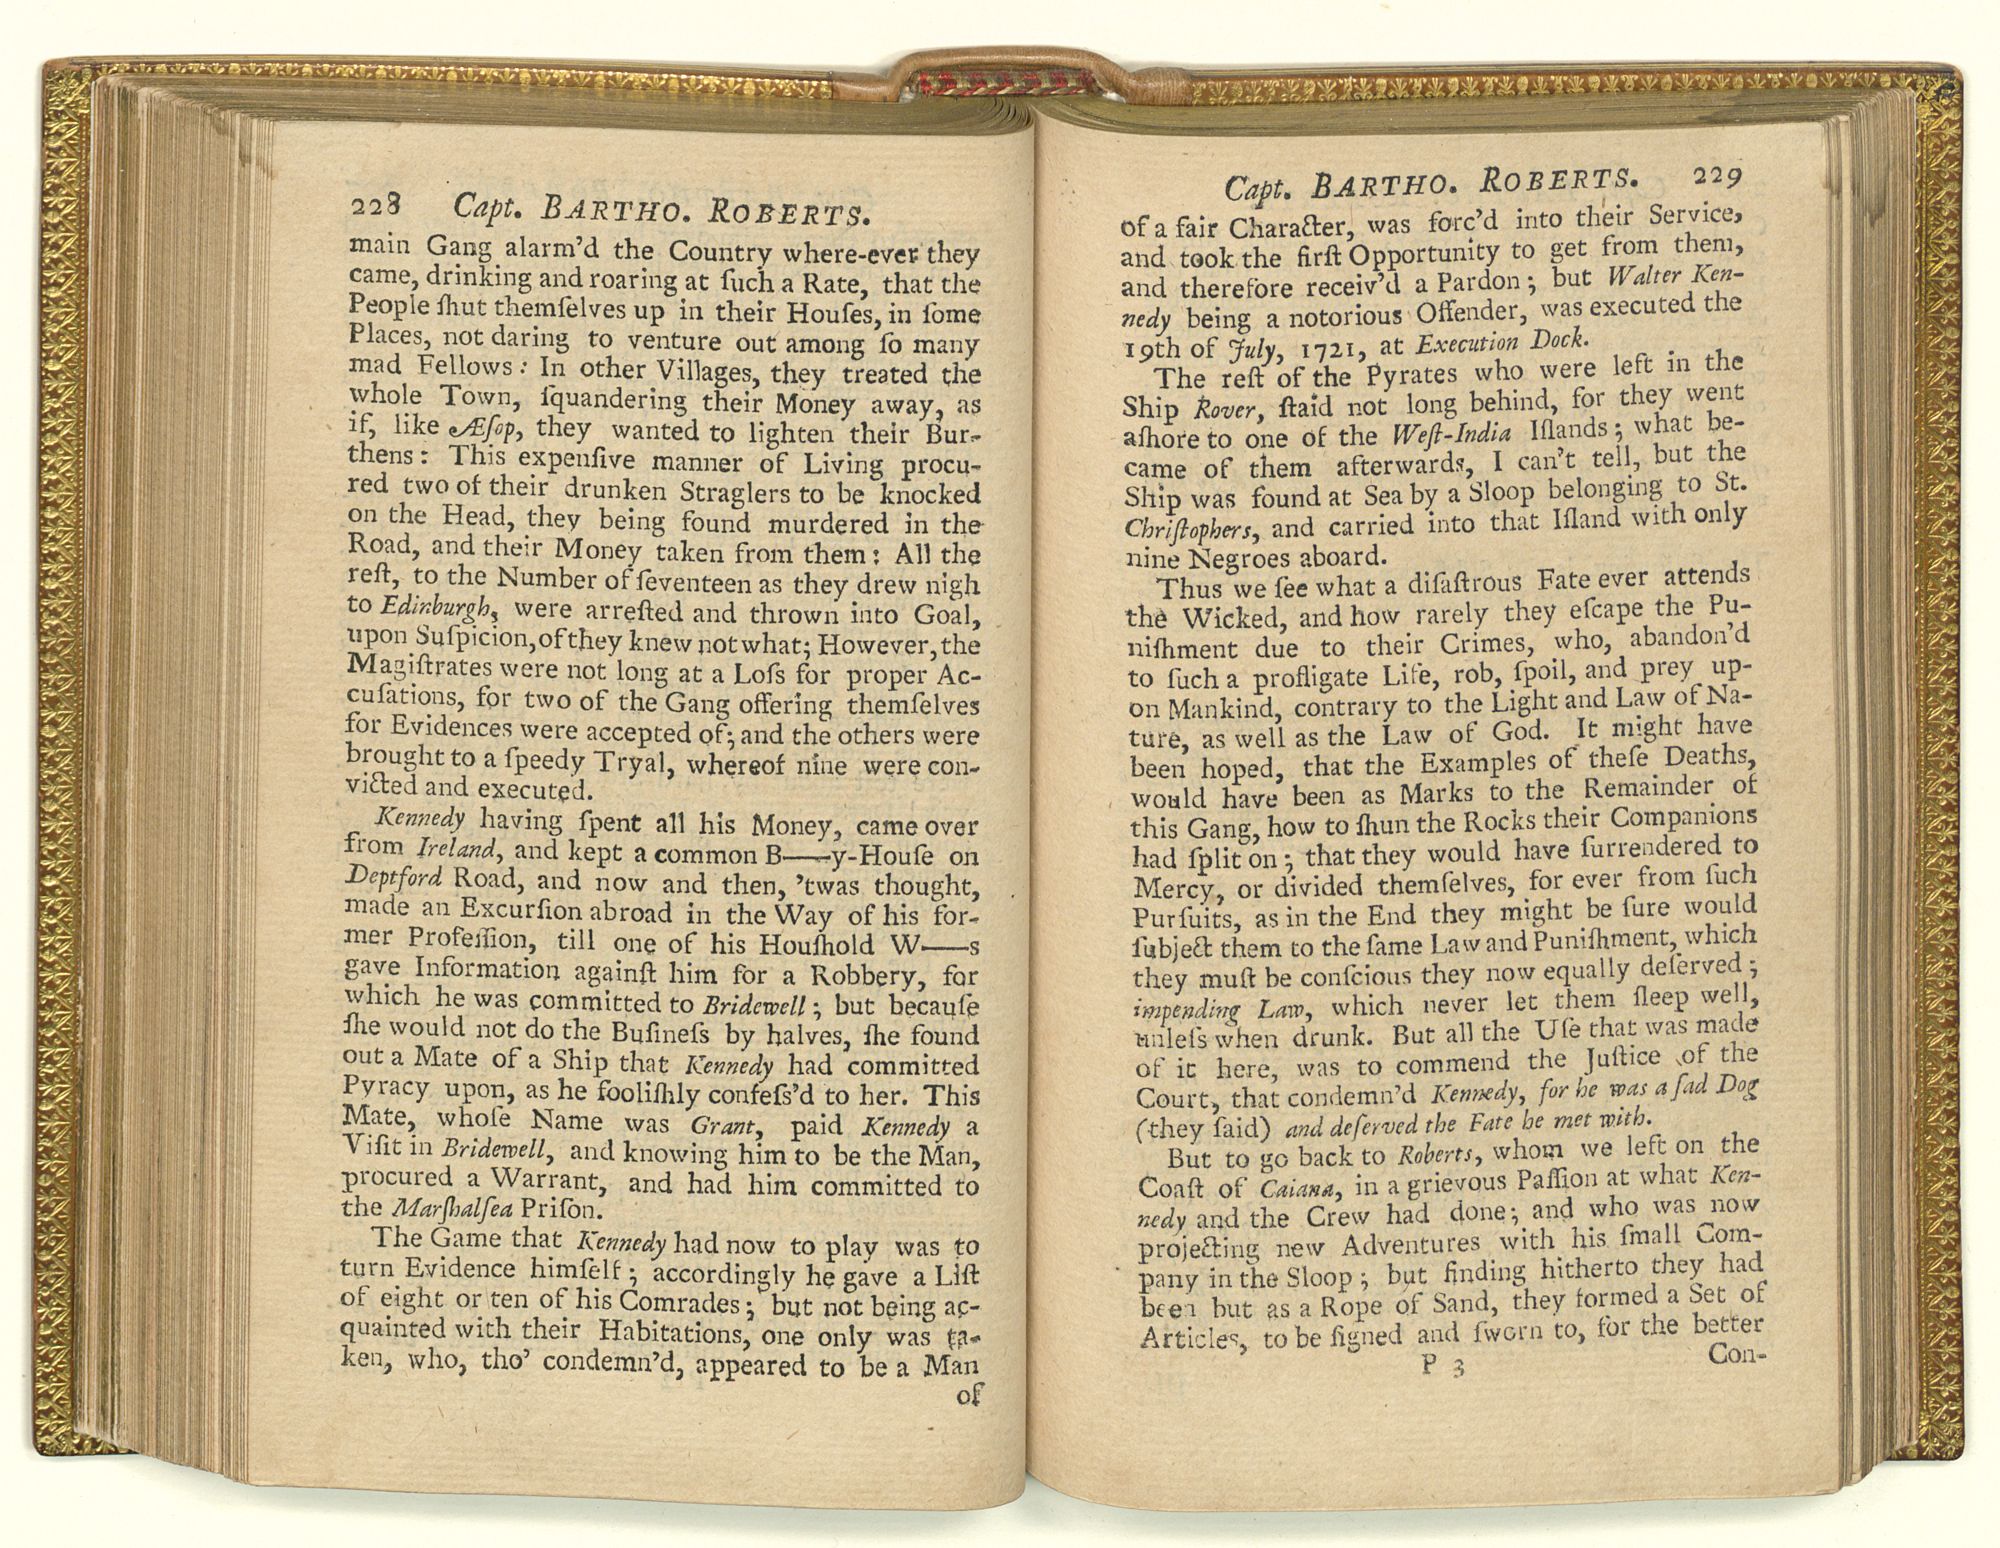 228 Capt. BARTHO. ROBERTS.
main Gang alarm'd the Country where-ever they
came, drinking and roaring at ſuch a Rate, that the
People ſhut themſelves up in their Houſes, in ſome
Places, not daring to venture out among ſo many
mad Fellows: In other Villages, they treated the
whole Town, ſquandering their Money away, as
if, like Æſop, they wanted to lighten their Bur-
thens: This expenſive manner of Living procu-
red two of their drunken Straglers to be knocked
on the Head, they being found murdered in the
Road, and their Money taken from them: All the
reſt, to the Number of ſeventeen as they drew nigh
to Edinburgh, were arreſted and thrown into Goal,
upon Suſpicion, of they knew not what; However, the
Magiſtrates were not long at a Loſs for proper Ac-
cuſations, for two of the Gang offering themſelves
for Evidences were accepted of; and the others were
brought to a ſpeedy Tryal, whereof nine were con-
victed and executed.
Kennedy having ſpent all his Money, came over
from Ireland, and kept a common B——y-Houſe on
Deptford Road, and now and then, 'twas thought,
made an Excurſion abroad in the Way of his for-
mer Profeſſion, till one of his Houſhold W——s
gave Information againſt him for a Robbery, for
which he was committed to Bridewell; but becauſe
ſhe would not do the Buſineſs by halves, ſhe found
out a Mate of a Ship that Kennedy had committed
Pyracy upon, as he fooliſhly confeſs'd to her. This
Mate, whoſe Name was Grant, paid Kennedy a
Viſit in Bridewell, and knowing him to be the Man,
procured a Warrant, and had him committed to
the Marſhalſea Priſon.
The Game that Kennedy had now to play was to
turn Evidence himſelf; accordingly he gave a Liſt
of eight or ten of his Comrades; but not being ac-
quainted with their Habitations, one only was ta-
ken, who, tho' condemn'd, appeared to be a Man
of
Capt. BARTHO. ROBERTS. 229
of a fair Character, was forc'd into their Service,
and took the firſt Opportunity to get from them,
and therefore receiv'd a Pardon; but Walter Ken-
nedy being a notorious Offender, was executed the
19th of July, 1721, at Execution Dock.
The reſt of the Pyrates who were left in the
Ship Rover, ſtaid not long behind, for they went
aſhore to one of the Weſt-India Iſlands; what be-
came of them afterwards, I can't tell, but the
Ship was found at Sea by a Sloop belonging to St.
Chriſtophers, and carried into that Iſland with only
nine Negroes aboard.
Thus we ſee what a diſaſtrous Fate ever attends
the Wicked, and how rarely they eſcape the Pu-
niſhment due to their Crimes, who, abandon'd
to ſuch a profligate Life, rob, ſpoil, and prey up-
on Mankind, contrary to the Light and Law of Na-
ture, as well as the Law of God. It might have
been hoped, that the Examples of theſe Deaths,
would have been as Marks to the Remainder of
this Gang, how to ſhun the Rocks their Companions
had ſplit on; that they would have ſurrendered to
Mercy, or divided themſelves, for ever from ſuch
Purſuits, as in the End they might be ſure would
ſubject them to the ſame Law and Puniſhment, which
they muſt be conſcious they now equally deſerved;
impending Law, which never let them ſleep well,
unleſs when drunk. But all the Uſe that was made
of it here, was to commend the Juſtice of the
Court, that condemn'd Kennedy, for he was a ſad Dog
(they ſaid) and deſerved the Fate he met with.
But to go back to Roberts, whom we left on the
Coaſt of Caiana, in a grievous Paſſion at what Ken-
nedy and the Crew had done; and who was now
projecting new Adventures with his ſmall Com-
pany in the Sloop; but finding hitherto they had
been but as a Rope of Sand, they formed a Set of
Articles, to be ſigned and ſworn to, for the better
P 3 Con-